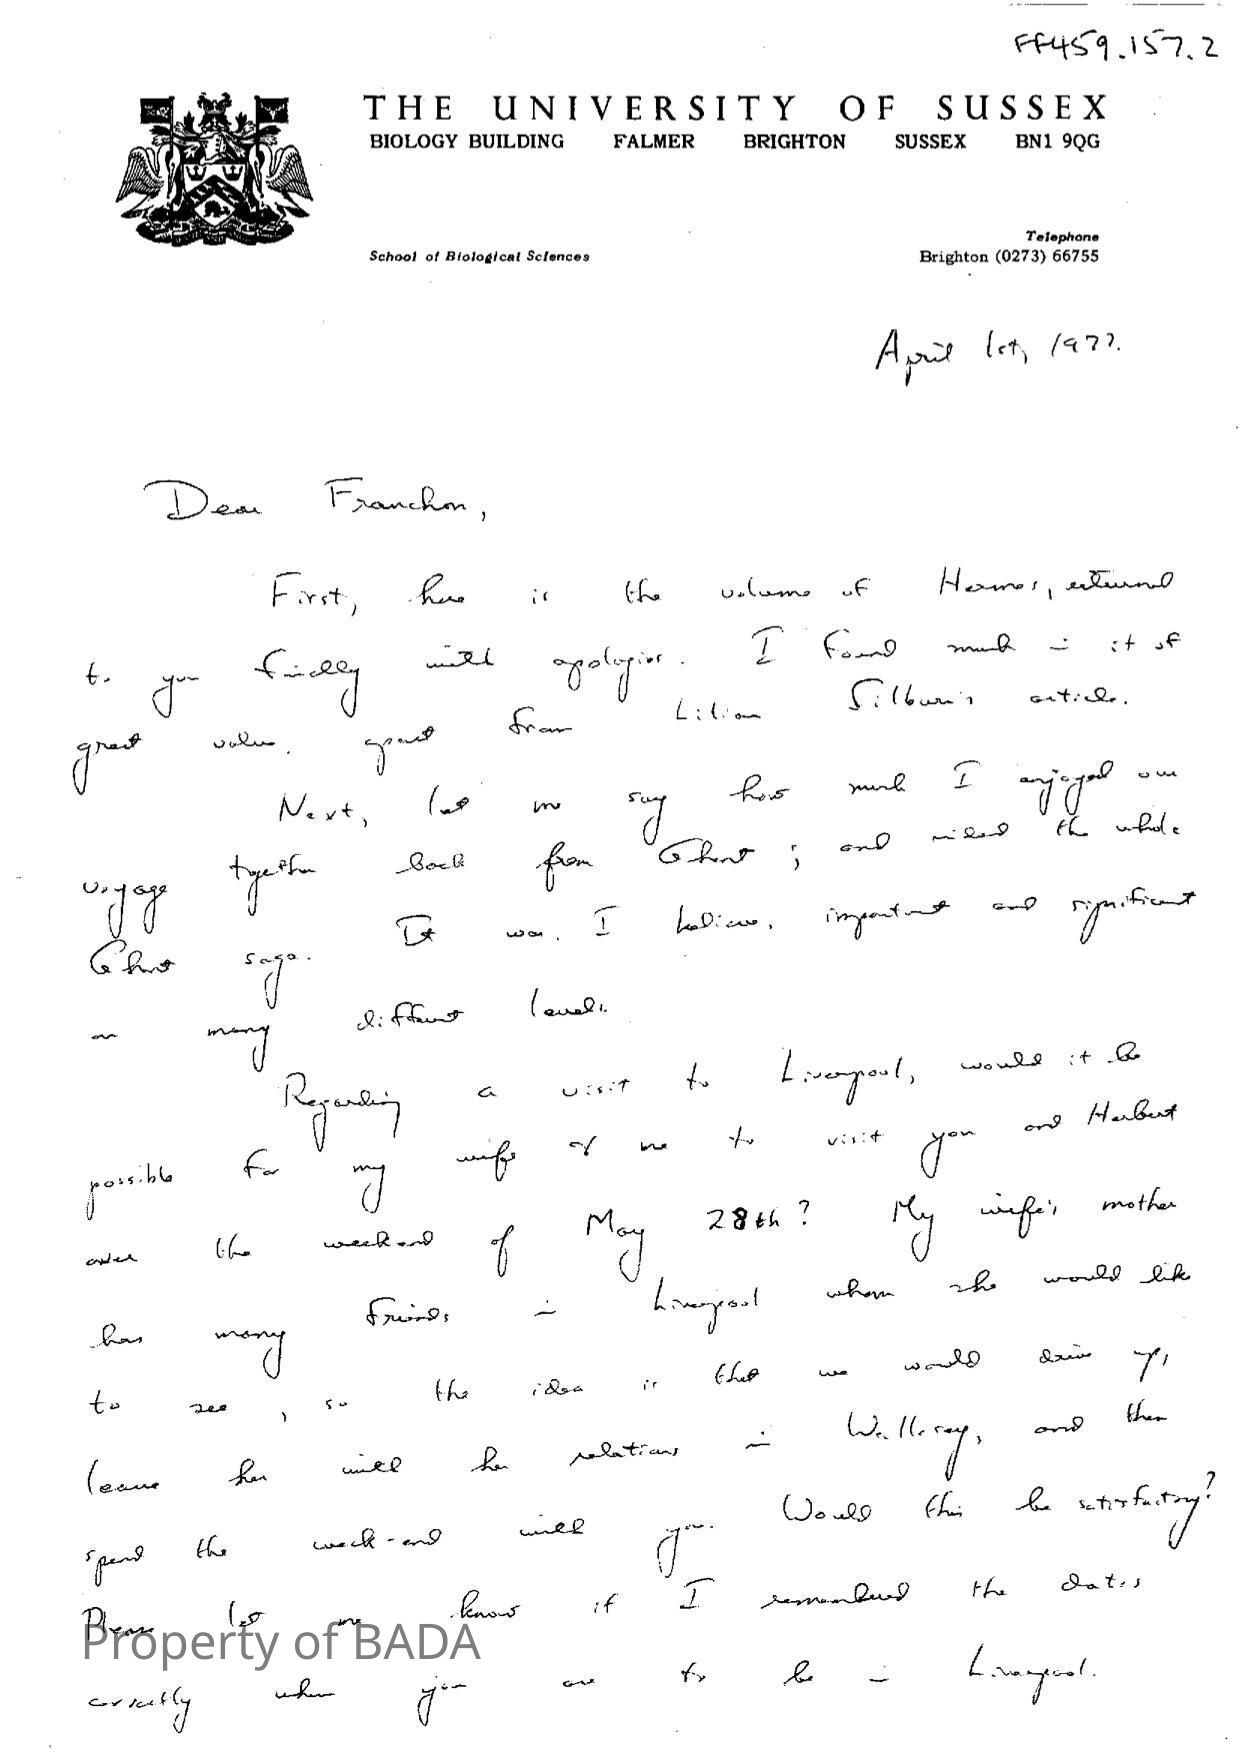 FF459.157.2
THE UNIVERSITY OF SUSSEX
BIOLOGY BUILDING FALMER BRIGHTON SUSSEX BN1 9QG
Telephone
School of Biological Sciences Brighton (0273) 66755
April 1st, 1977.
Dear Franchon,
First, here is the volume of Hermes, returned
to you finally with apologies. I found much in it of
great value, apart from Lilian Silburn's article.
Next, let me say how much I enjoyed our
voyage together back from Ghent; and indeed the whole
Ghent saga. It was, I believe, important and significant
on many different levels.
Regarding a visit to Liverpool, would it be
possible for my wife & me to visit you and Herbert
over the weekend of May 28th? My wife's mother
has many friends in Liverpool whom she would like
to see, so the idea is that we would drive up,
leave her with her relations in Wallasey, and then
spend the week-end with you. Would this be satisfactory?
Please let me know if I remembered the dates
correctly when you are to be in Liverpool.
Property of BADA